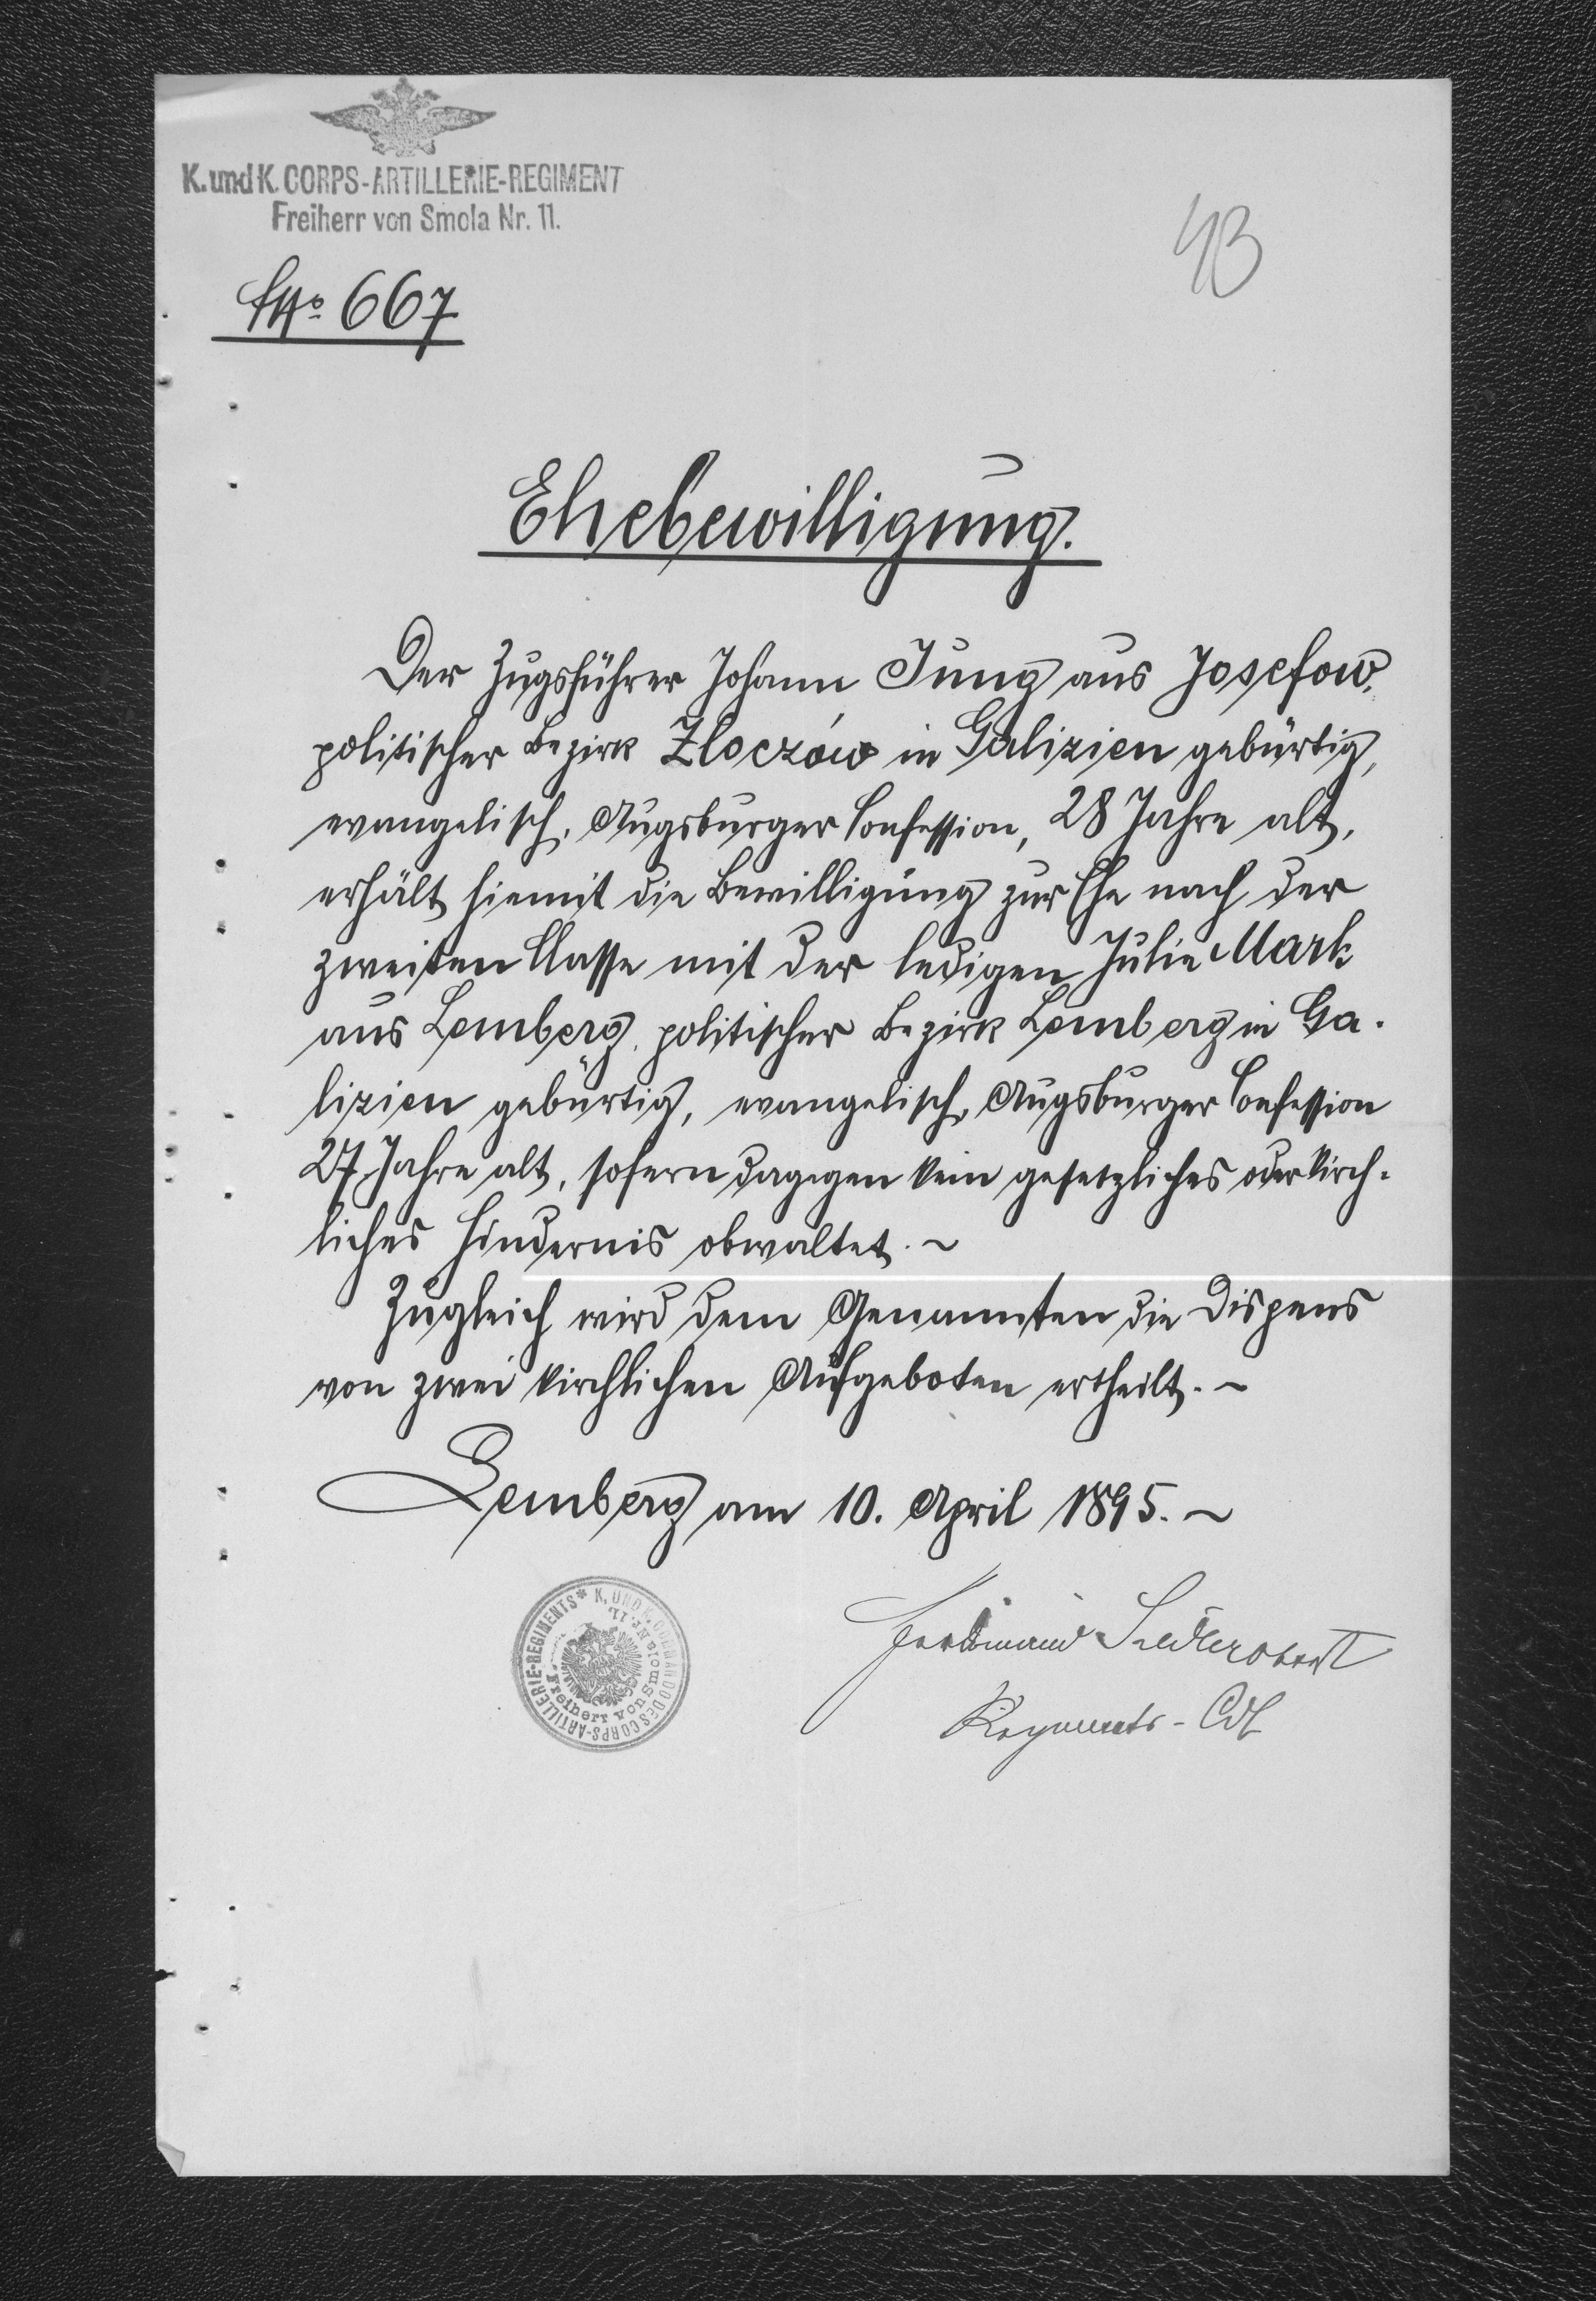 K. und K. CORPS-ARTILLERIE-REGIMENT
Freiherr von Smola Nr. 11.
43
No 667
Ehebewilligung.
Der Zugsführer Johann Jung aus Josefow,
politischer Bezirk Złoczów in Galizien gebürtig,
evangelisch, Augsburger Confession, 28 Jahre alt,
erhält hiemit die Bewilligung zur Ehe nach der
zweiten Classe mit der ledigen Julie Mark
aus Lemberg, politischer Bezirk Lemberg in Ga-
lizien gebürtig, evangelisch, Augsburger Confession
27 Jahre alt, sofern dagegen kein gesetzliches oder kirch-
liches Hindernis obwaltet. ~
Zugleich wird dem Genannten die Dispens
von zwei kirchlichen Aufgeboten ertheilt. ~
Lemberg am 10. April 1895. ~
K. UND K. COMMANDO DES CORPS-ARTILLERIE-REGIMENTS *
Freiherr von Smola Nr. 11.
Ferdinand Obrst
Regiments-Cdt